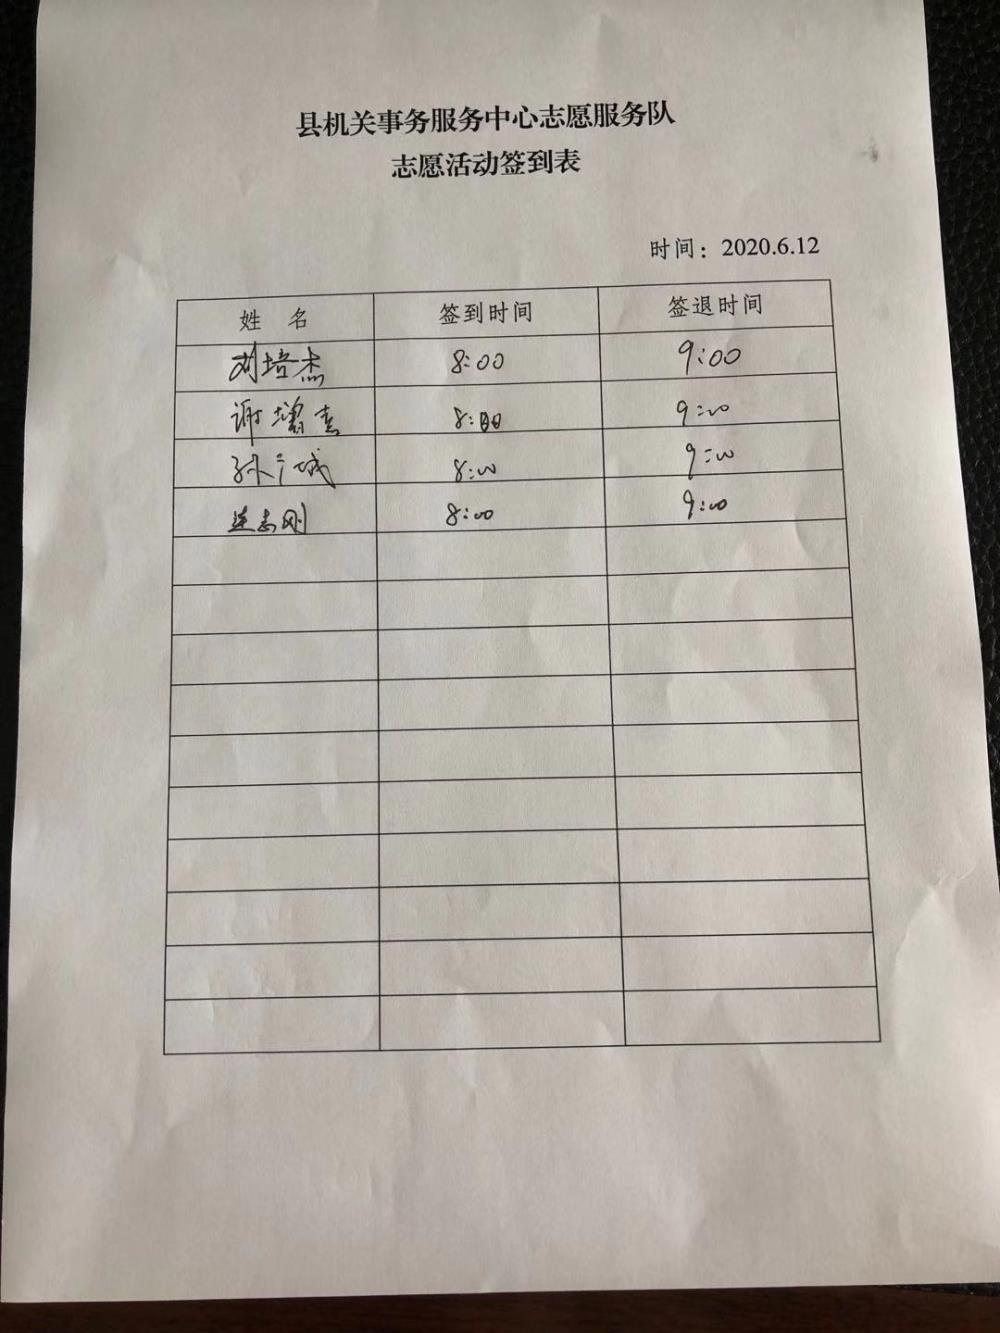 县机关事务服务中心志愿服务队
志愿活动签到表
时间：2020.6.12
姓 名 签到时间 签退时间
刘培杰 8:00 9:00
谢增 8:00 9:00
孙广城 8:00 9:00
志刚 8:00 9:00